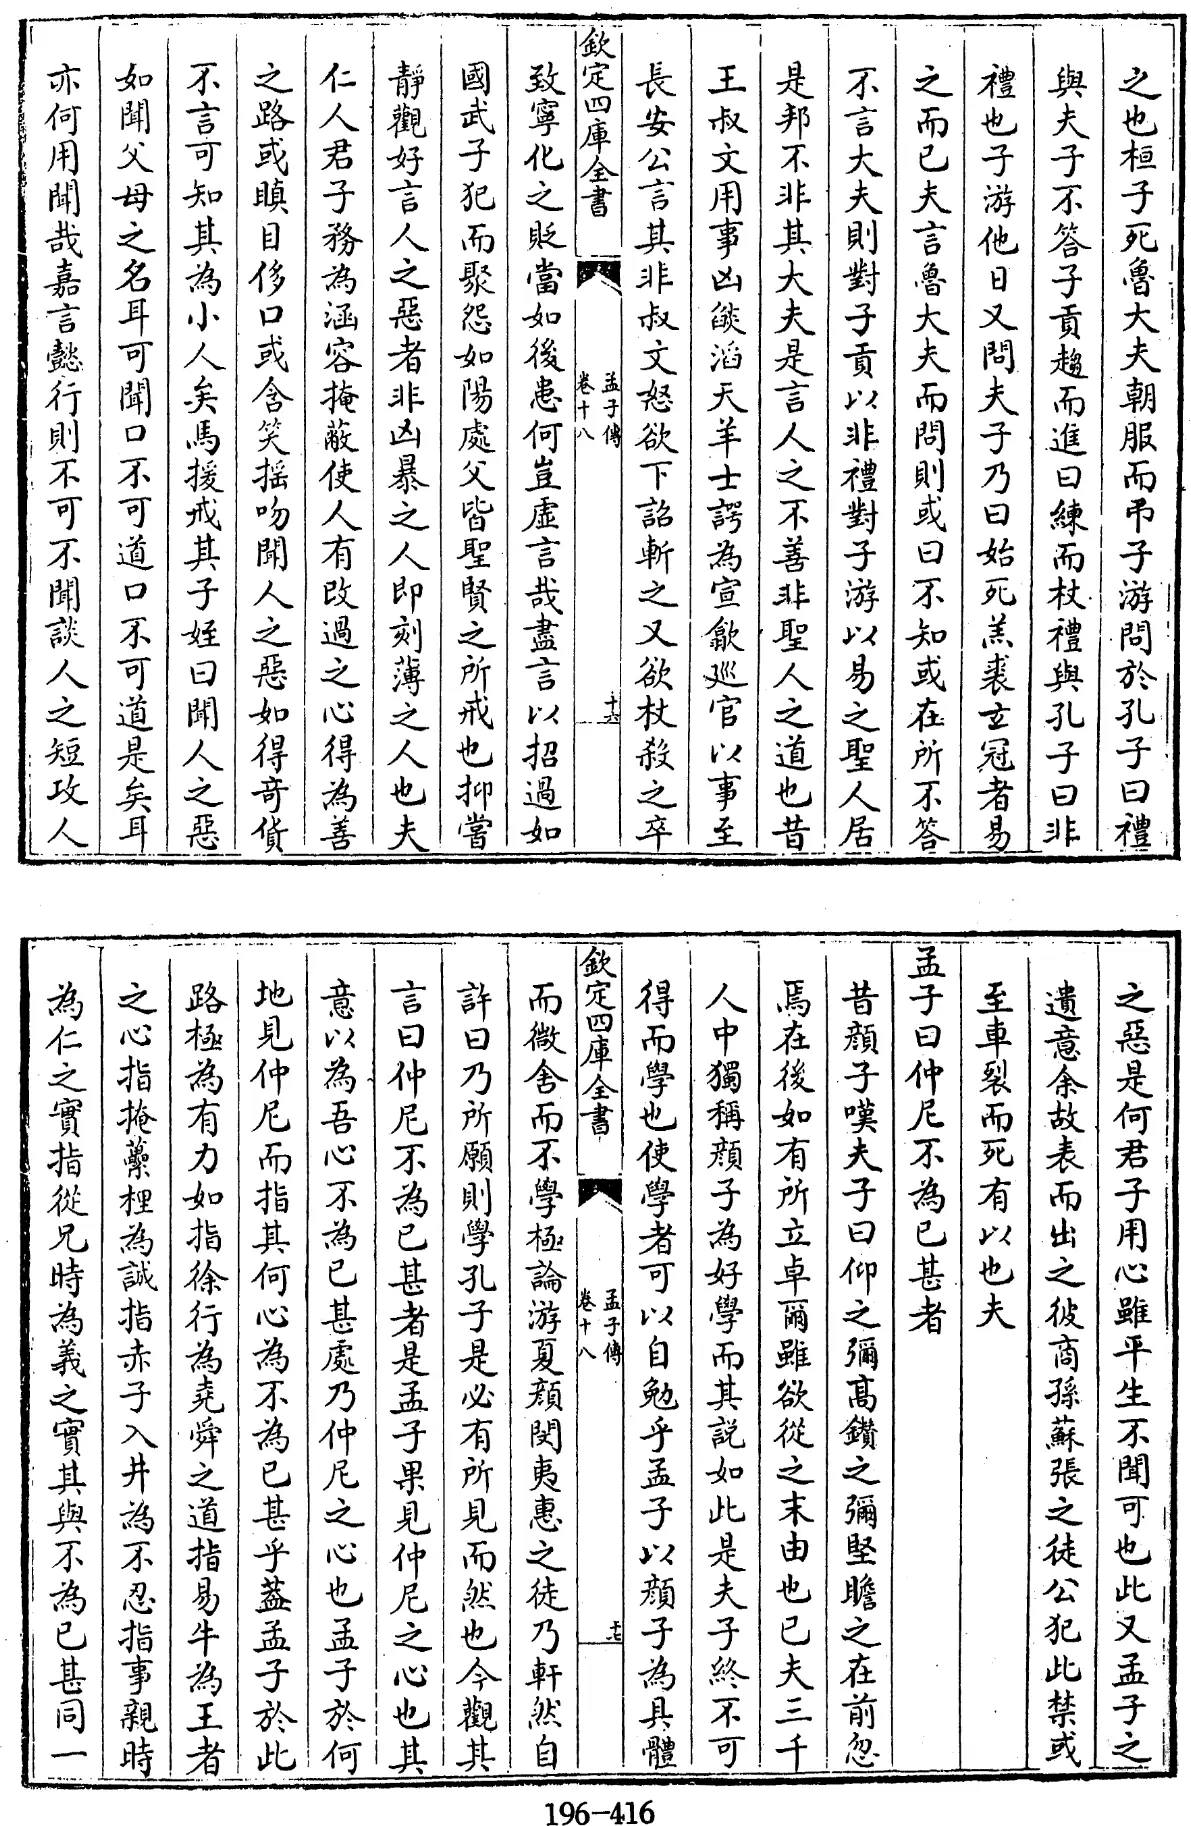 之也桓子死魯大夫朝服而弔子游問於孔子曰禮
與夫子不答子貢趨而進曰練而杖禮與孔子曰非
禮也子游他日又問夫子乃曰始死羔裘玄冠者易
之而已夫言魯大夫而問則或曰不知或在所不答
不言大夫則對子貢以非禮對子游以易之聖人居
是邦不非其大夫是言人之不善非聖人之道也昔
王叔文用事凶燄滔天羊士諤為宣歙廵官以事至
長安公言其非叔文怒欲下詔斬之又欲杖殺之卒
欽定四庫全書
孟子傳
卷十八
十六
致寧化之貶當如後患何豈虛言哉盡言以招過如
國武子犯而聚怨如陽處父皆聖賢之所戒也抑嘗
靜觀好言人之惡者非凶暴之人即刻薄之人也夫
仁人君子務為涵容掩蔽使人有改過之心得為善
之路或瞋目侈口或含笑摇吻聞人之惡如得奇貨
不言可知其為小人矣馬援戒其子姪曰聞人之惡
如聞父母之名耳可聞口不可道口不可道是矣耳
亦何用聞哉嘉言懿行則不可不聞談人之短攻人
之惡是何君子用心雖平生不聞可也此又孟子之
遺意余故表而出之彼商孫蘇張之徒公犯此禁或
至車裂而死有以也夫
孟子曰仲尼不為已甚者
昔顔子嘆夫子曰仰之彌髙鑚之彌堅瞻之在前忽
焉在後如有所立卓爾雖欲從之末由也已夫三千
人中獨稱顔子為好學而其説如此是夫子終不可
得而學也使學者可以自勉乎孟子以顔子為具體
欽定四庫全書
孟子傳
卷十八
十七
而微舍而不學極論游夏顔閔夷惠之徒乃軒然自
許曰乃所願則學孔子是必有所見而然也今觀其
言曰仲尼不為已甚者是孟子果見仲尼之心也其
意以為吾心不為已甚處乃仲尼之心也孟子於何
地見仲尼而指其何心為不為已甚乎葢孟子於此
路極為有力如指徐行為堯舜之道指易牛為王者
之心指掩虆梩為誠指赤子入井為不忍指事親時
為仁之實指從兄時為義之實其與不為已甚同一
196-416